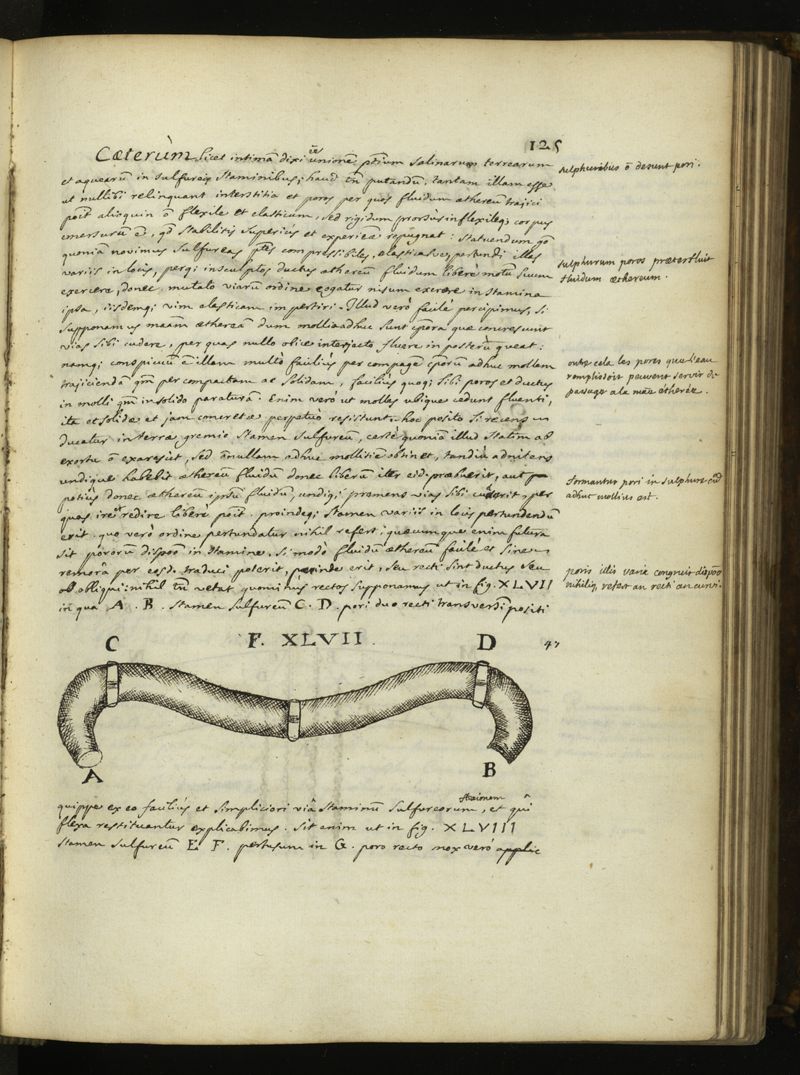 125
Cæterùm licet intimã dixi ẽẽ unionẽ ptium salinarum terrearum
et aquearũ in sulfureis staminibus; haud tñ putandũ, tantam illam esse
ut nullibi relinquant interstitia et poros per quos fluidum æthereũ trajici
põit alioquin õ flexile et elasticum, sed rigidum prorsus inflexileq; corpus
emersurũ ẽ, qđ stabilitis superius et experiæ repugnat: statuendum gõ
quoniã novimus sulfureas ptes compressibiles, elasticasq;
variis in locis, insculptos ductus æthereũ fluidum liberè motũ suum
exercere, donec mutato viarũ ordine cogatur nisum exerere in stamina
ipsa, iisdemq; vim elasticam impertiri. Illud verò facilè percipimus, si
supponamus maam æthereã dum mollia adhuc sunt cpora quæ concrescunt
vias sibi cudere, per quas nullo obice interjecto fluere in posterũ queat:
namq; conspicuũ ẽ illam multò faciliùs per compagẽ cporũ adhuc mollem
trajiciendã qm per compactam ac solidam, faciliùs quoq; sibi poros et ductus
in molli qm in solido paraturã. Enim verò ut molles ubique cedunt fluenti,
ita et solidæ et jam concretæ perpetuò resistunt. hoc posito si recens in
ducatur in terræ gremio stamen sulfureũ, certè quoniã illud statim ab
exortu õ exarescit, sed ãnullam adhuc mollitiẽ obtinet, tandiu adnitens
undique habebit æthereũ fluidũ donec liberũ iter eid. præbuerit, aut
potiùs donec æthereũ ipsũ fluidũ, undiq; premens vias sibi cuderit, per
quas ire redire liberè põit. proindeq; stamen variis in locis pertundendũ
erit. quo verò ordine pertundatur nihil refert; quæcumque enim futura
sit pororũ disposõ in stamine, si modò fluidũ æthereũ facilè et sine
remorâ per eosd. traduci poterit, perinde erit, seu recti sint ductus seu
obliqui: nihil tñ vetat quominùs rectos supponamus ut in fig. XLVII
in qua A. B. stamen sulfureũ C. D. pori duo recti transversim positi
sulphuribus õ desunt pori.
sulphurum poros præterfluit
fluidum æthereum.
outre cela les pores que l'eau
remplissoit peuvent servir de
passage a la maẽ etherée.
formantur pori in sulphure cũ
adhuc mollius est.
poris illis varia congruit dispoõ
nihilq; refert an recti an curvi.
C F. XLVII. D
47
A B
quippe ex eo faciliùs et simpliciori viâ staminũ sulfureorum, et quî
flexa restituantur explicabimus. sit enim ut in fig. XLVIII
stamen sulfureũ E F. pertusum in G. poro recto mox verò applic